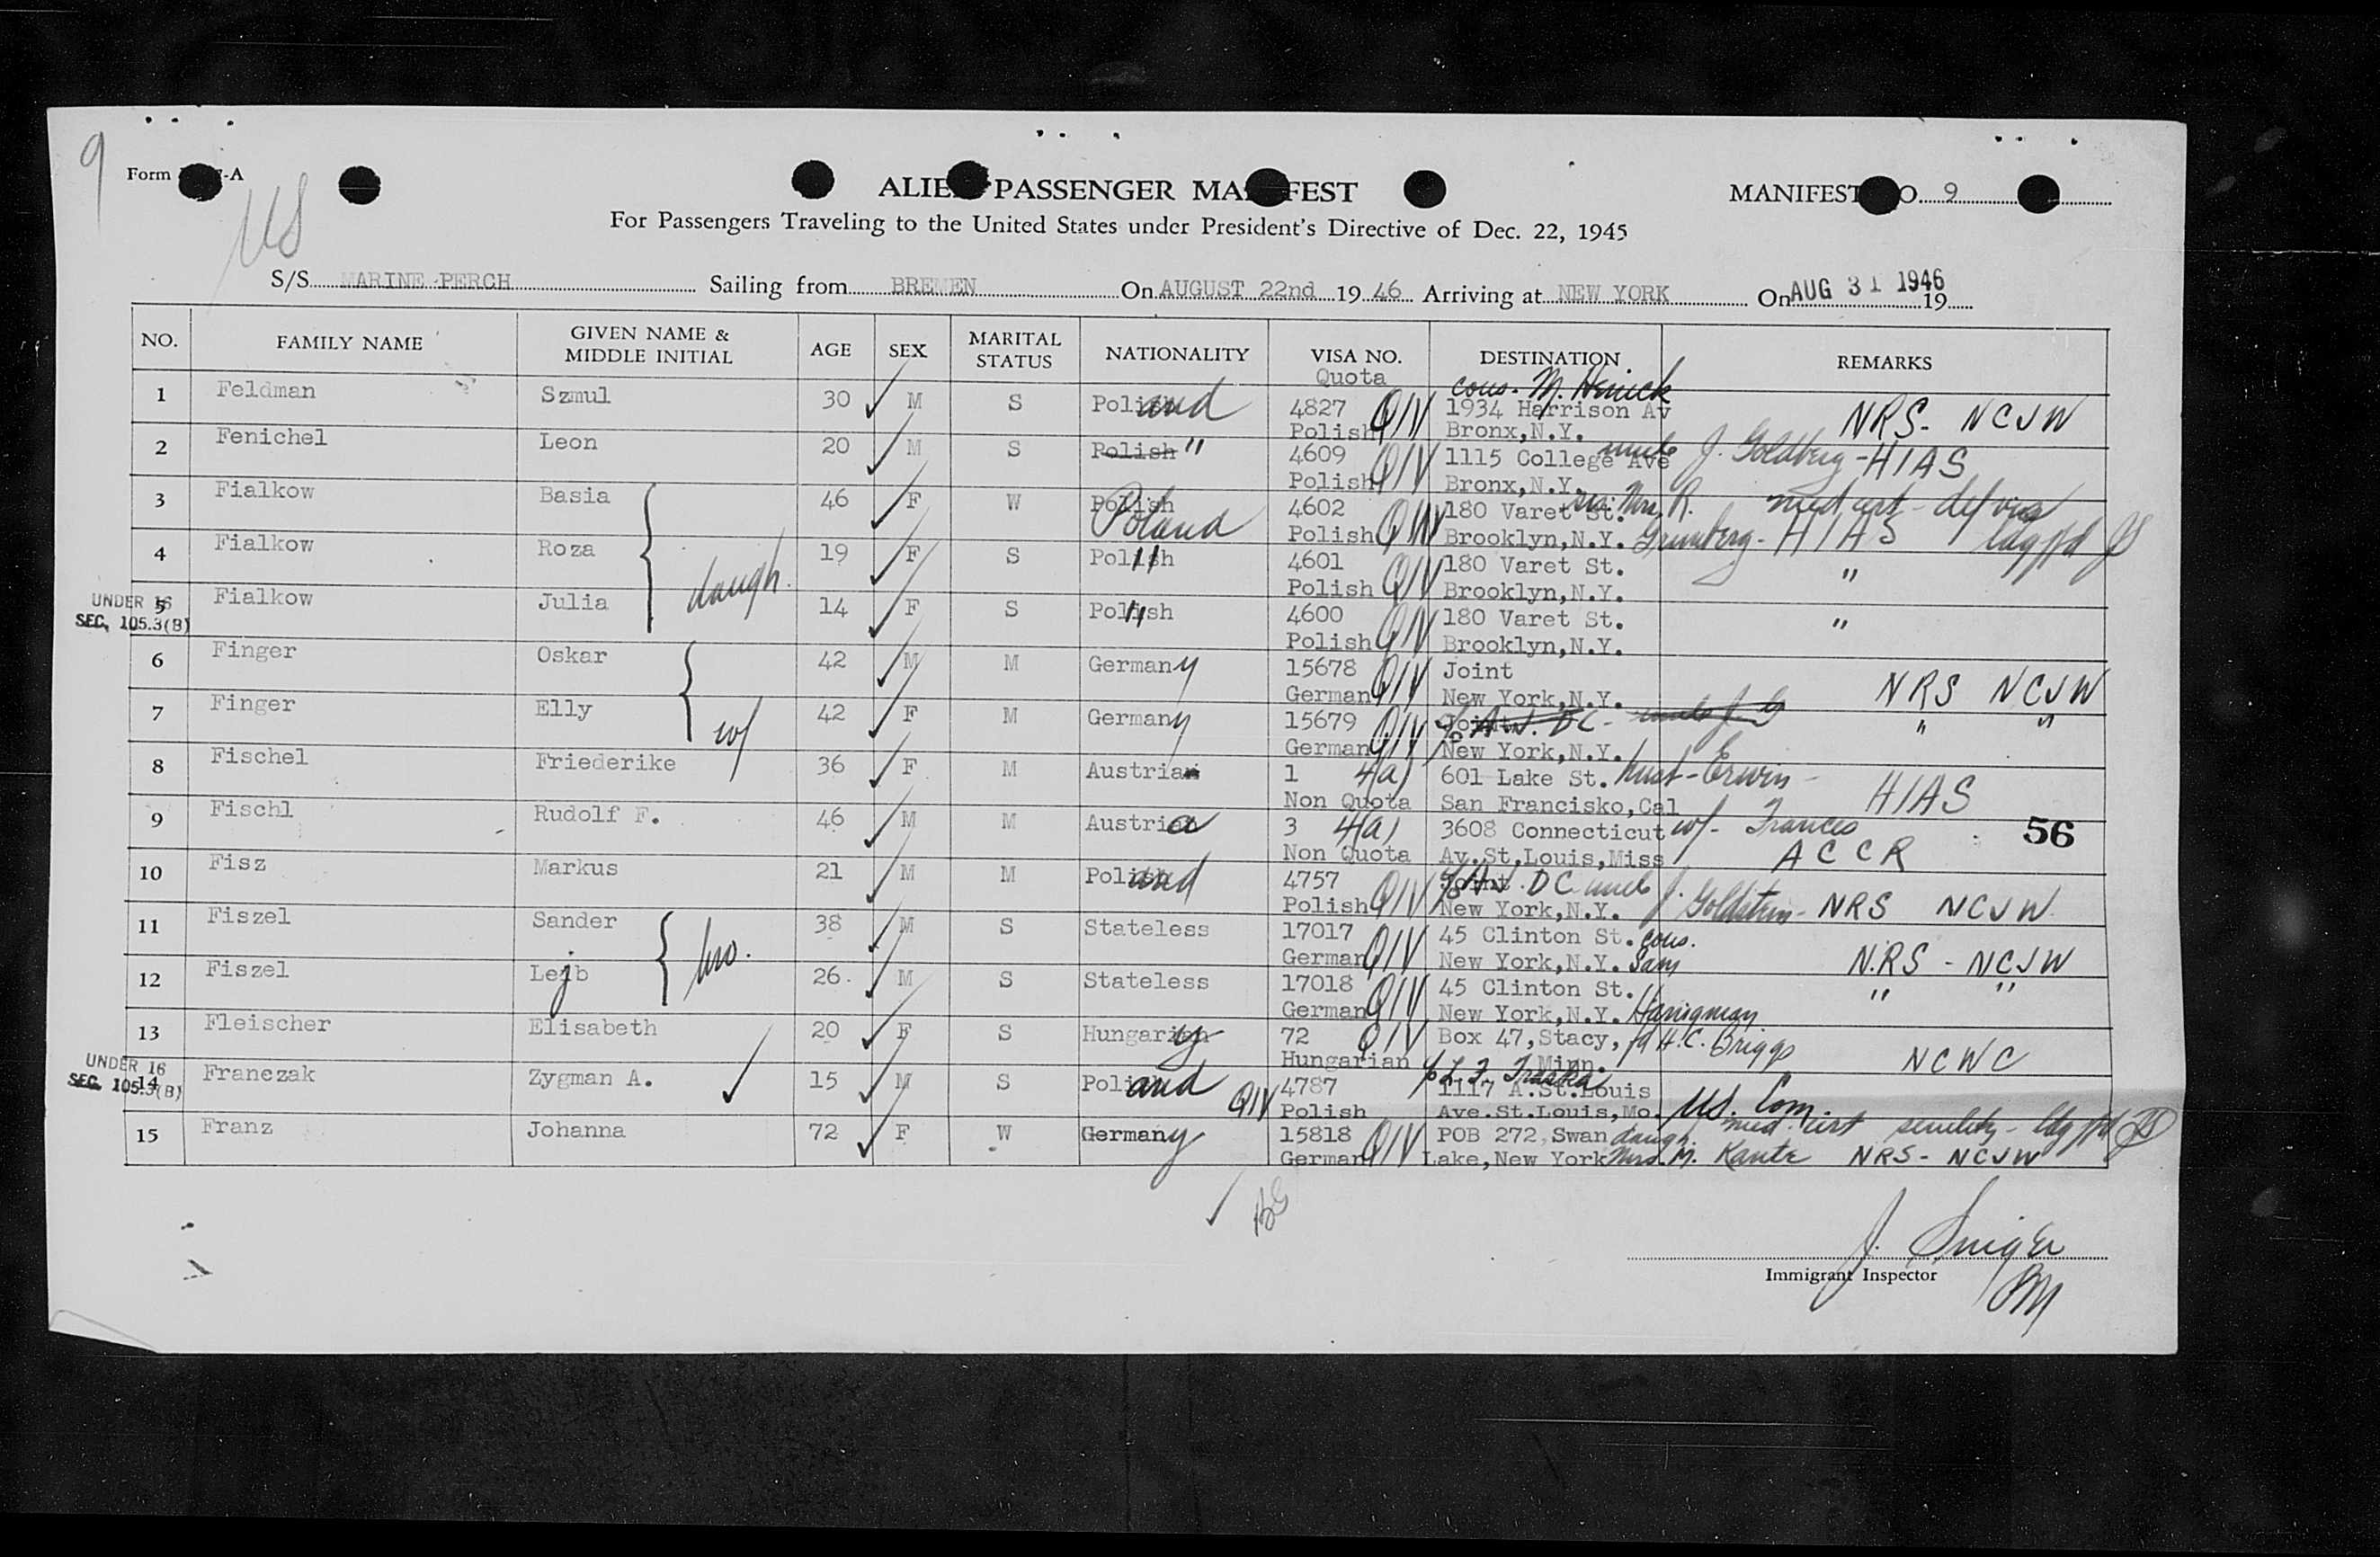 9
Form -A
US
ALIEN PASSENGER MANIFEST
MANIFEST NO. 9
For Passengers Traveling to the United States under President's Directive of Dec. 22, 1945
S/S MARINE PERCH Sailing from BREMEN On AUGUST 22nd 19 46 Arriving at NEW YORK On AUG 31 1946 19
NO. FAMILY NAME GIVEN NAME & MIDDLE INITIAL AGE SEX MARITAL STATUS NATIONALITY VISA NO. DESTINATION REMARKS
Quota cous. M.
1 Feldman Szmul 30 M S Poland 4827 QIV 1934 Harrison Av NRS- NCJW
Polish Bronx,N.Y.
2 Fenichel Leon 20 M S Polish " 4609 QIV 1115 College Ave uncle J. Goldberg - HIAS
Polish Bronx,N.Y.
3 Fialkow Basia 46 F W Polish Poland 4602 180 Varet St. Mrs. R. med cert - def vision
Polish QIV Brooklyn,N.Y. Grunberg - HIAS
4 Fialkow Roza daugh. 19 F S Polish " 4601 180 Varet St. "
Polish QIV Brooklyn,N.Y.
UNDER 16
SEC. 105.3(B)
5 Fialkow Julia 14 F S Polish " 4600 180 Varet St. "
Polish QIV Brooklyn,N.Y.
6 Finger Oskar 42 M M Germany 15678 QIV Joint NRS NCJW
German New York,N.Y.
7 Finger Elly w/ 42 F M Germany 15679 QIV Joint " "
German New York,N.Y.
8 Fischel Friederike 36 F M Austria 1 4(a) 601 Lake St. husb - Erwin - HIAS
Non Quota San Francisko,Cal
9 Fischl Rudolf F. 46 M M Austria 3 4(a) 3608 Connecticut w/- Frances 56
Non Quota Av.St.Louis,Miss ACCR
10 Fisz Markus 21 M M Poland 4757 QIV Joint c/o AJDC uncle J.
Polish New York,N.Y. Goldstein - NRS NCJW
11 Fiszel Sander 38 M S Stateless 17017 QIV 45 Clinton St. cous.
German New York,N.Y. Sam NRS - NCJW
12 Fiszel Lejb bro. 26 M S Stateless 17018 QIV 45 Clinton St. " "
German New York,N.Y. Hanigman
13 Fleischer Elisabeth 20 F S Hungary 72 QIV Box 47,Stacy, H.C. Briggs NCWC
Hungarian Minn.
UNDER 16
SEC. 105.3(B)
14 Franczak Zygman A. 15 M S Poland QIV 4787 1117 A.St.Louis
Polish Ave.St.Louis,Mo. US. Com.
15 Franz Johanna 72 F W Germany 15818 QIV POB 272,Swan daugh. med. cert senility -
German Lake,New York Mrs. M. Kantz NRS - NCJW
Immigrant Inspector